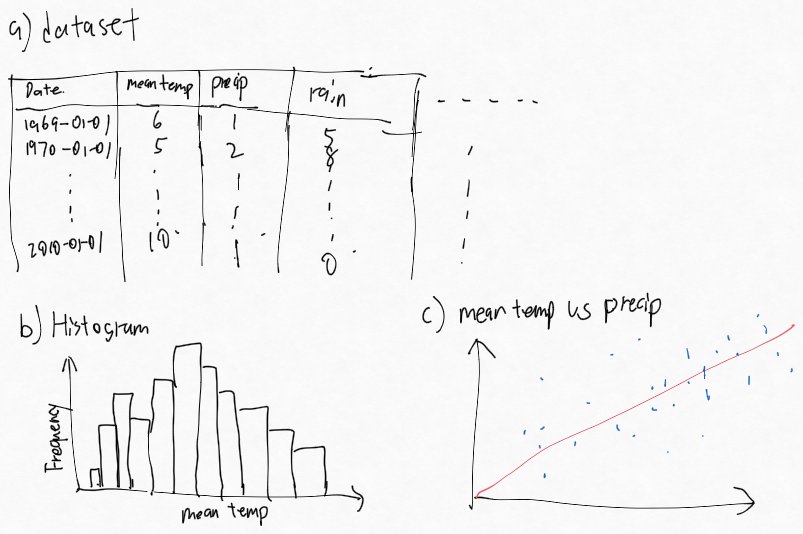 a) dataset
Date. mean temp precip rain
1969-01-01 6 1 5
1970-01-01 5 2 8
2010-01-01 10 1 0
b) Histogram
Frequency
mean temp
c) mean temp vs precip